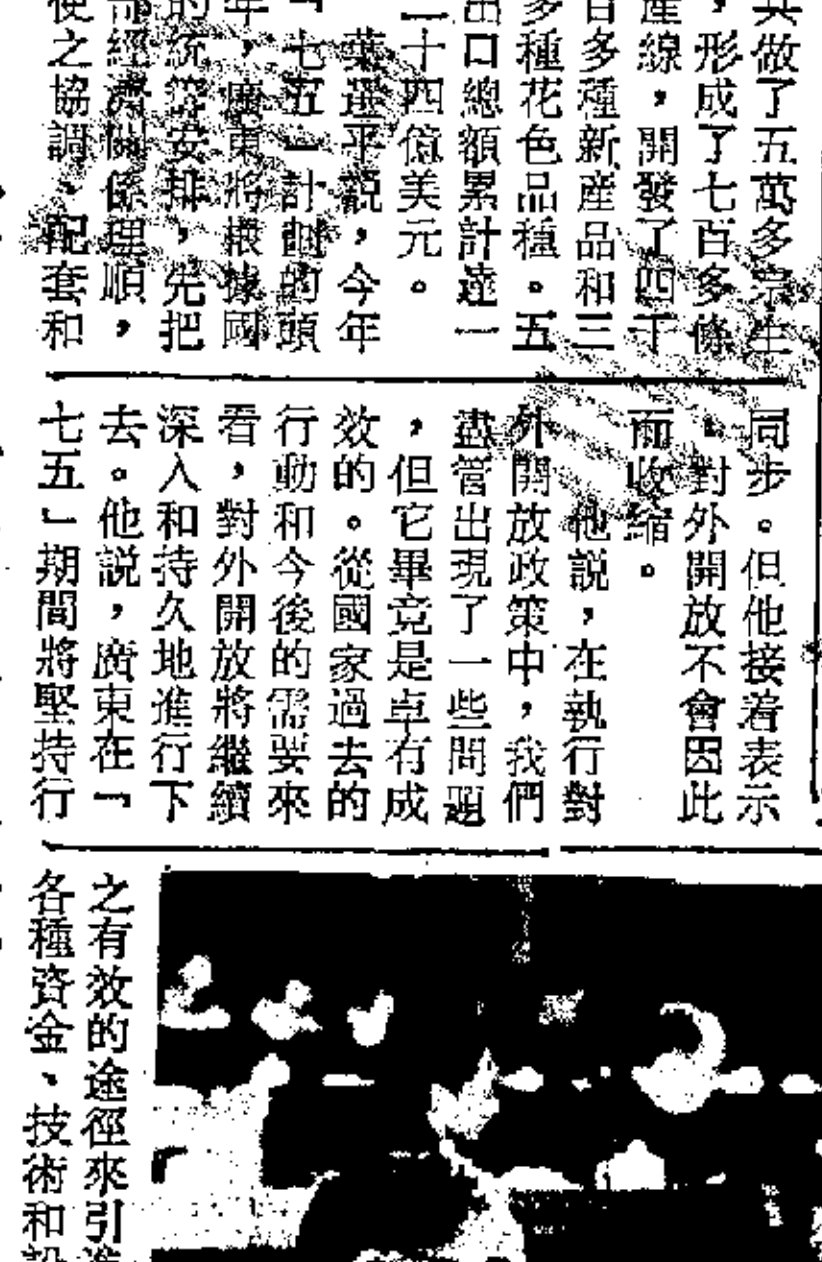 共做了五萬多宗生
，形成了七百多條
產線，開發了四千
百多種新產品和三
多種花色品種。五
出口總額累計達一
二十四億美元。
葉選平說，今年
「七五」計劃的頭
年，廣東將根據國
的統籌安排，先把
部經濟關係理順，
使之協調、配套和
同步。但他接着表示
，對外開放不會因此
而收縮。
他說，在執行對
外開放政策中，我們
儘管出現了一些問題
，但它畢竟是卓有成
效的。從國家過去的
行動和今後的需要來
看，對外開放將繼續
深入和持久地進行下
去。他說，廣東在「
七五」期間將堅持行
之有效的途徑來引進
各種資金、技術和設